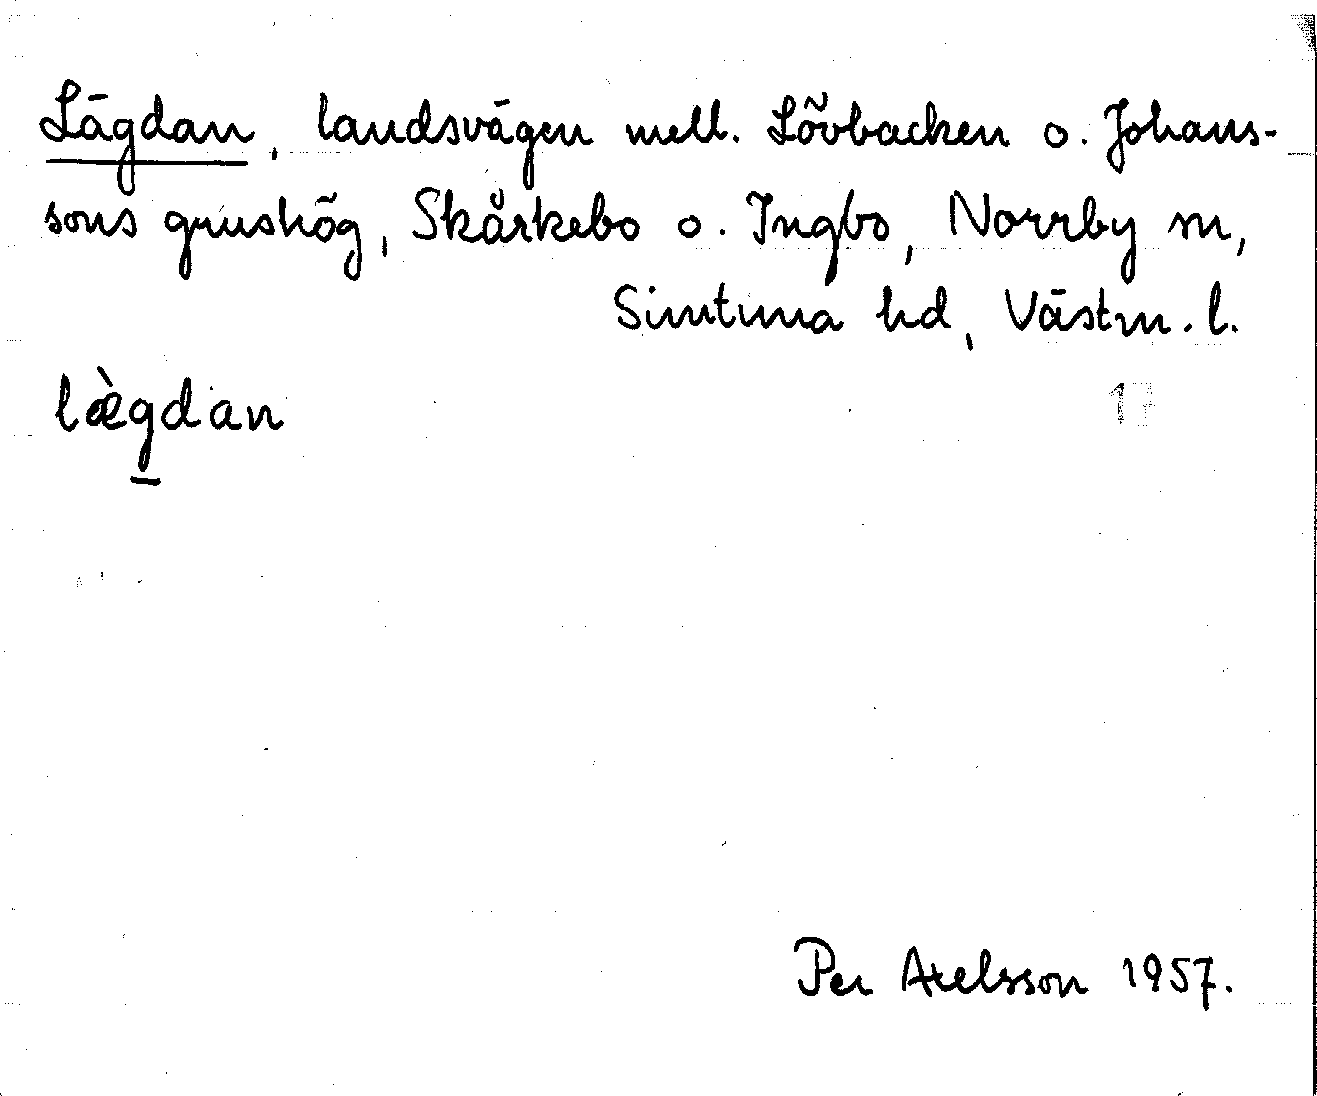 Lägdan, landsvägen mell. Lövbacken o. Johans-
sons grushög, Skårkebo o. Ingbo, Norrby sn,
Simtuna hd, Västm. l.
lægdan
17
Per Axelsson 1957.